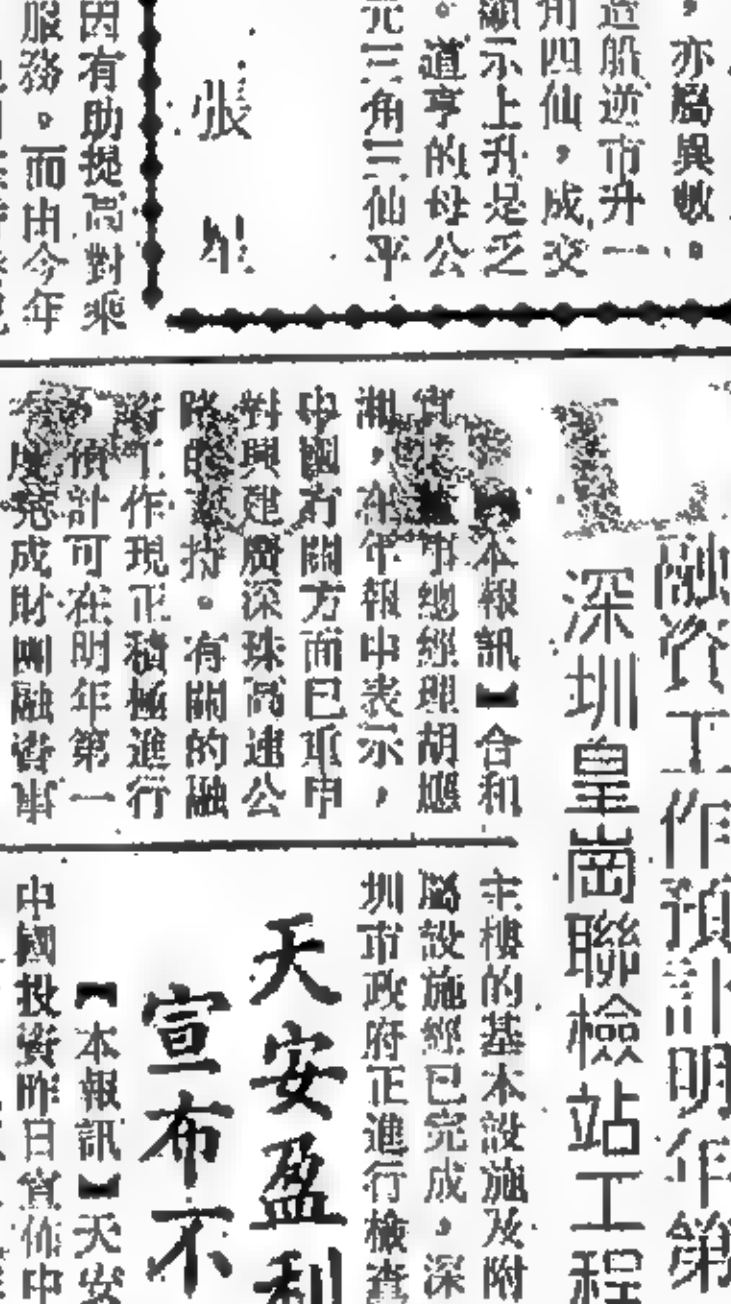 ，亦屬異數。
造船逆市升一
角四仙，成交
顯示上升是乏
。道亨的母公
元三角三仙平
張
因有助提高對乘
服務。而由今年
融資工作預計明年第
深圳皇崗聯檢站工程
本報訊】合和
總經理胡應
湘，在年報中表示，
中國有關方面已重申
對興建廣深珠高速公
路的支持。有關的融
工作現正積極進行
預計可在明年第一
度完成財團融資事
主樓的基本設施及附
屬設施經已完成，深
圳市政府正進行檢查
天安盈利
宣布不
【本報訊】天安
中國投資昨日宣佈中